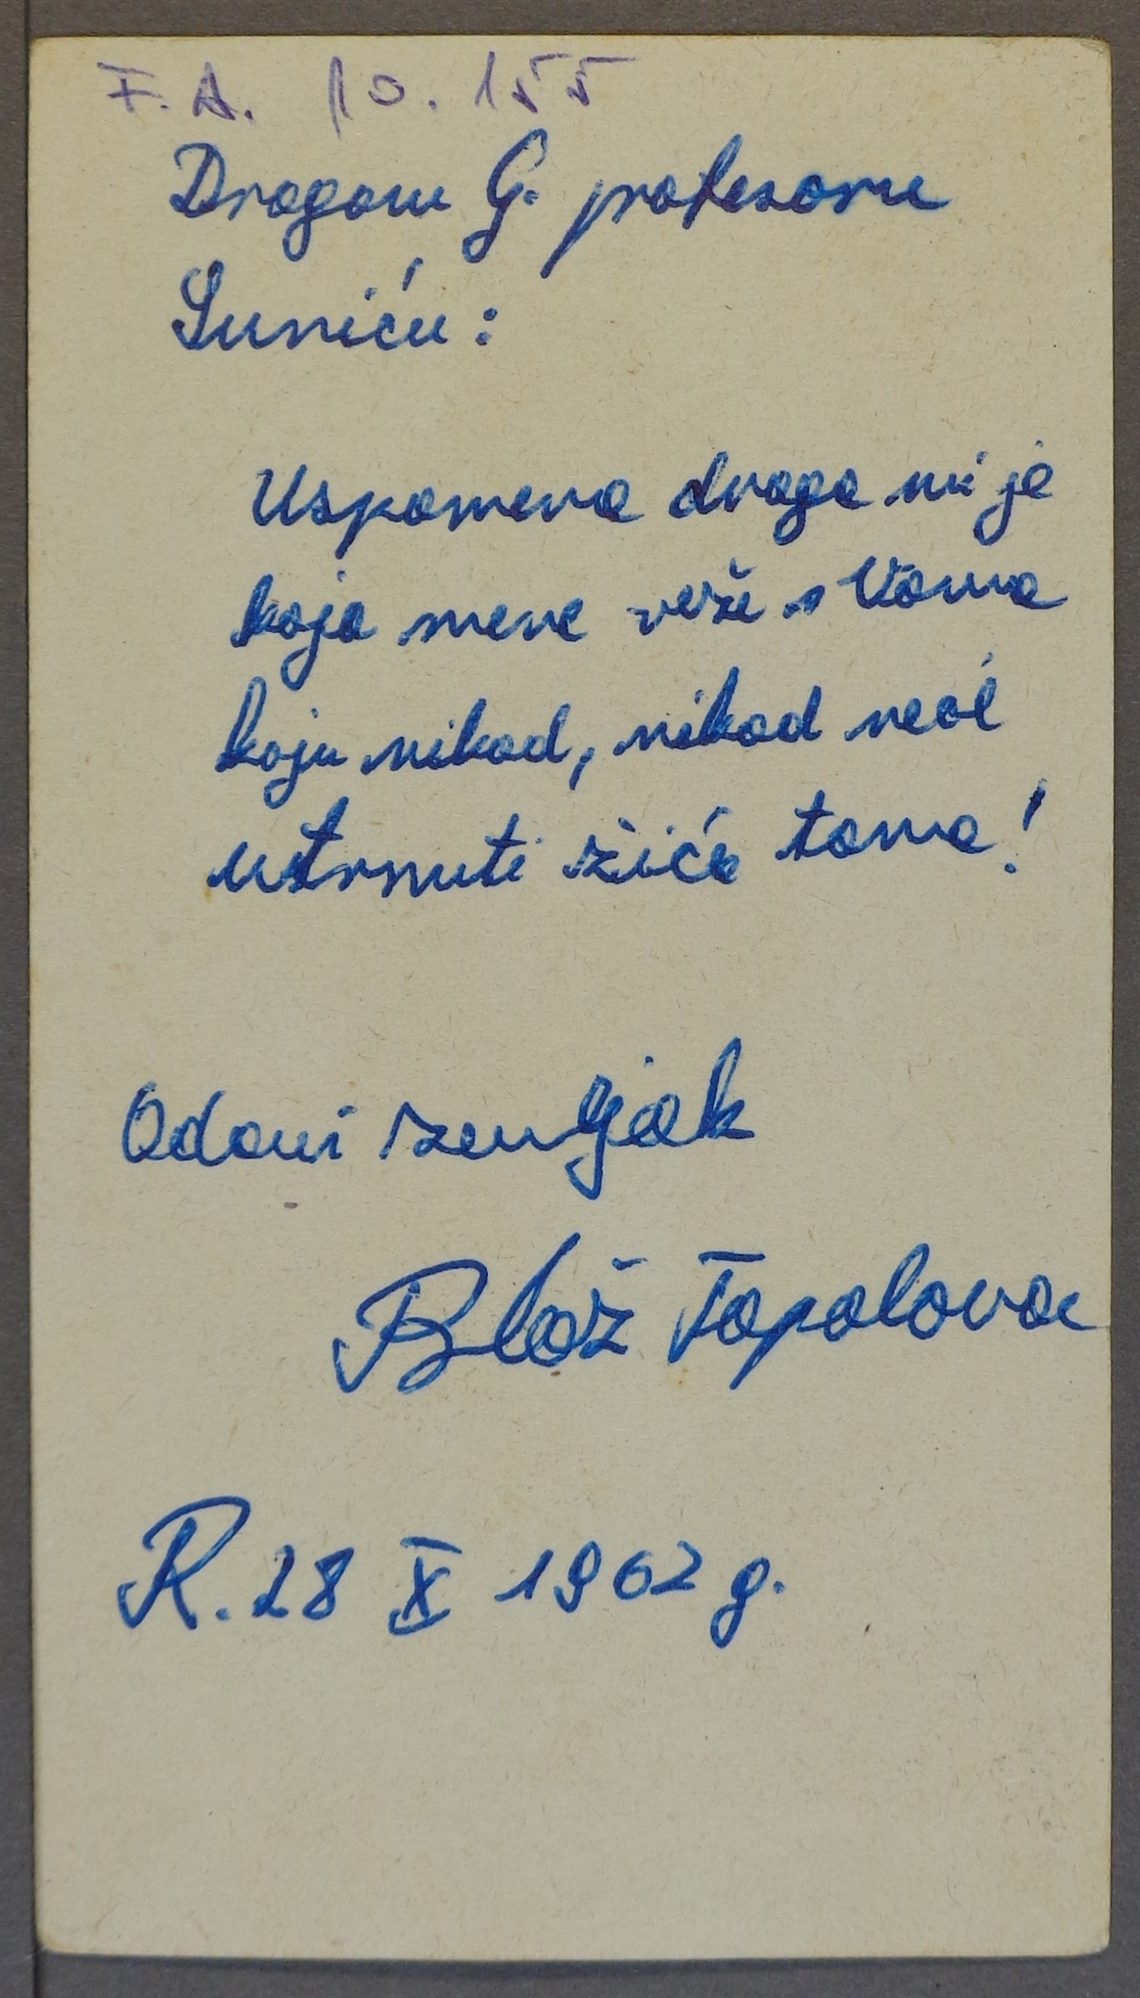 F. A. 10. 155
Dragom G. profesoru
Luniću:
Uspomena draga mi je
koja mene veže s Vama
koju nikad, nikad neće
utrnuti žića tama!
Odani
Blaž Topolovac
R. 28 X 1962 g.